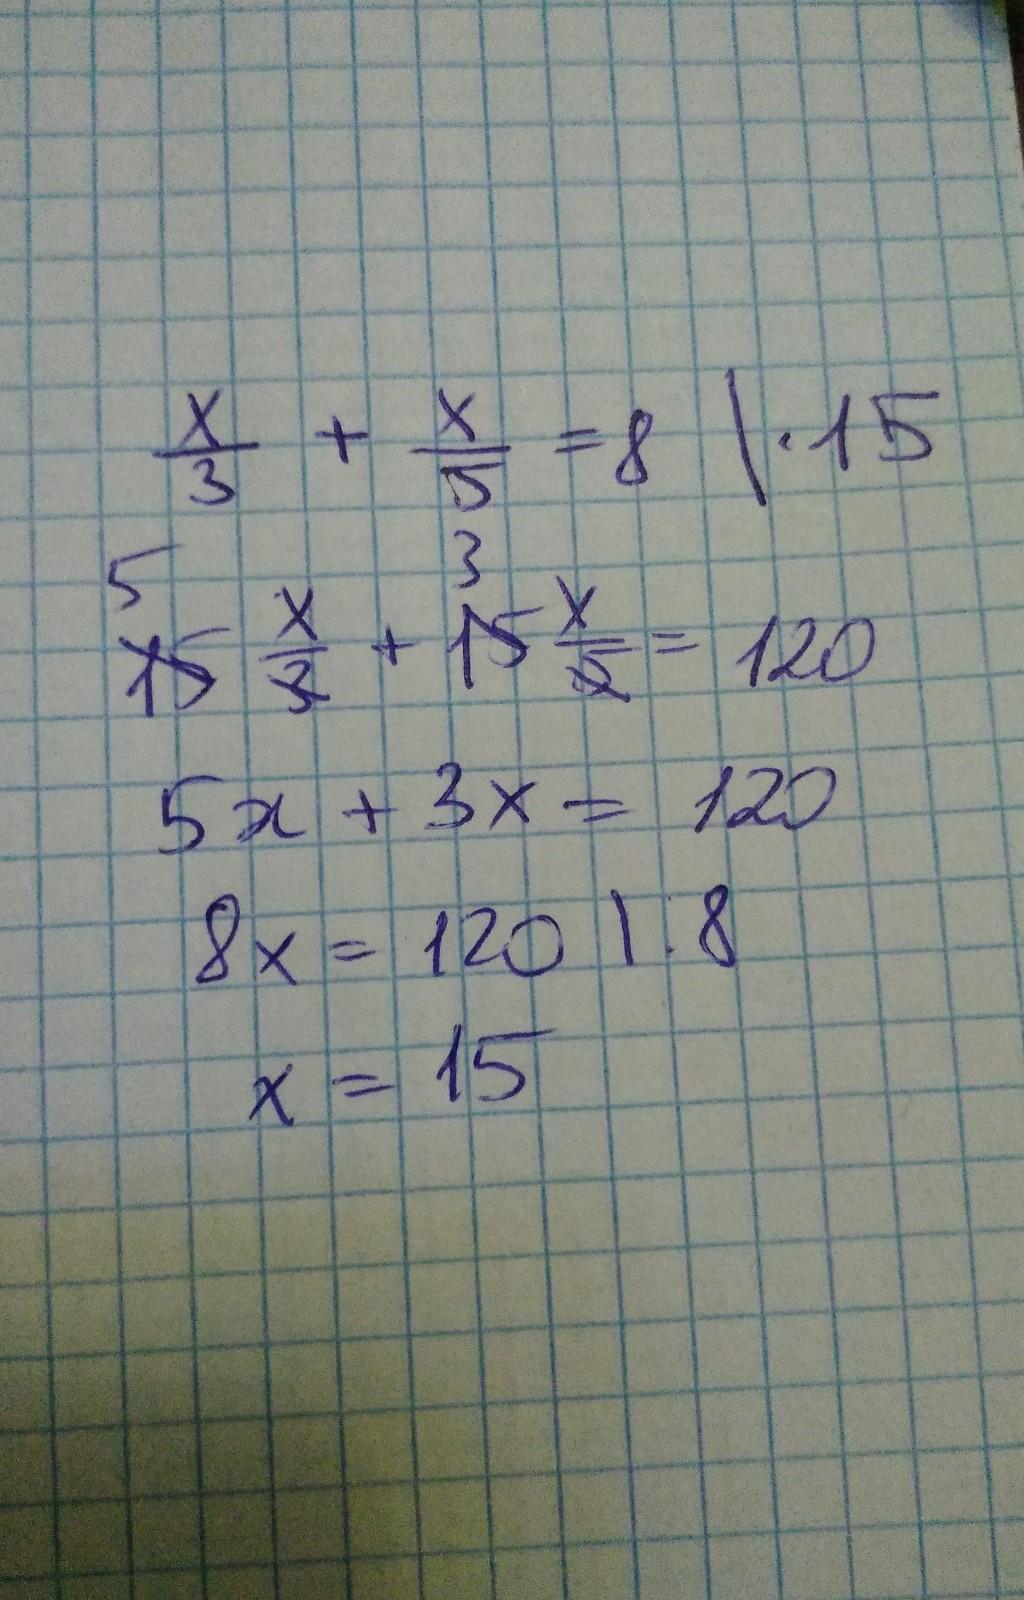 x/3 + x/5 = 8 | · 15
5 3
15 x/3 + 15 x/5 = 120
5x + 3x = 120
8x = 120 | : 8
x = 15